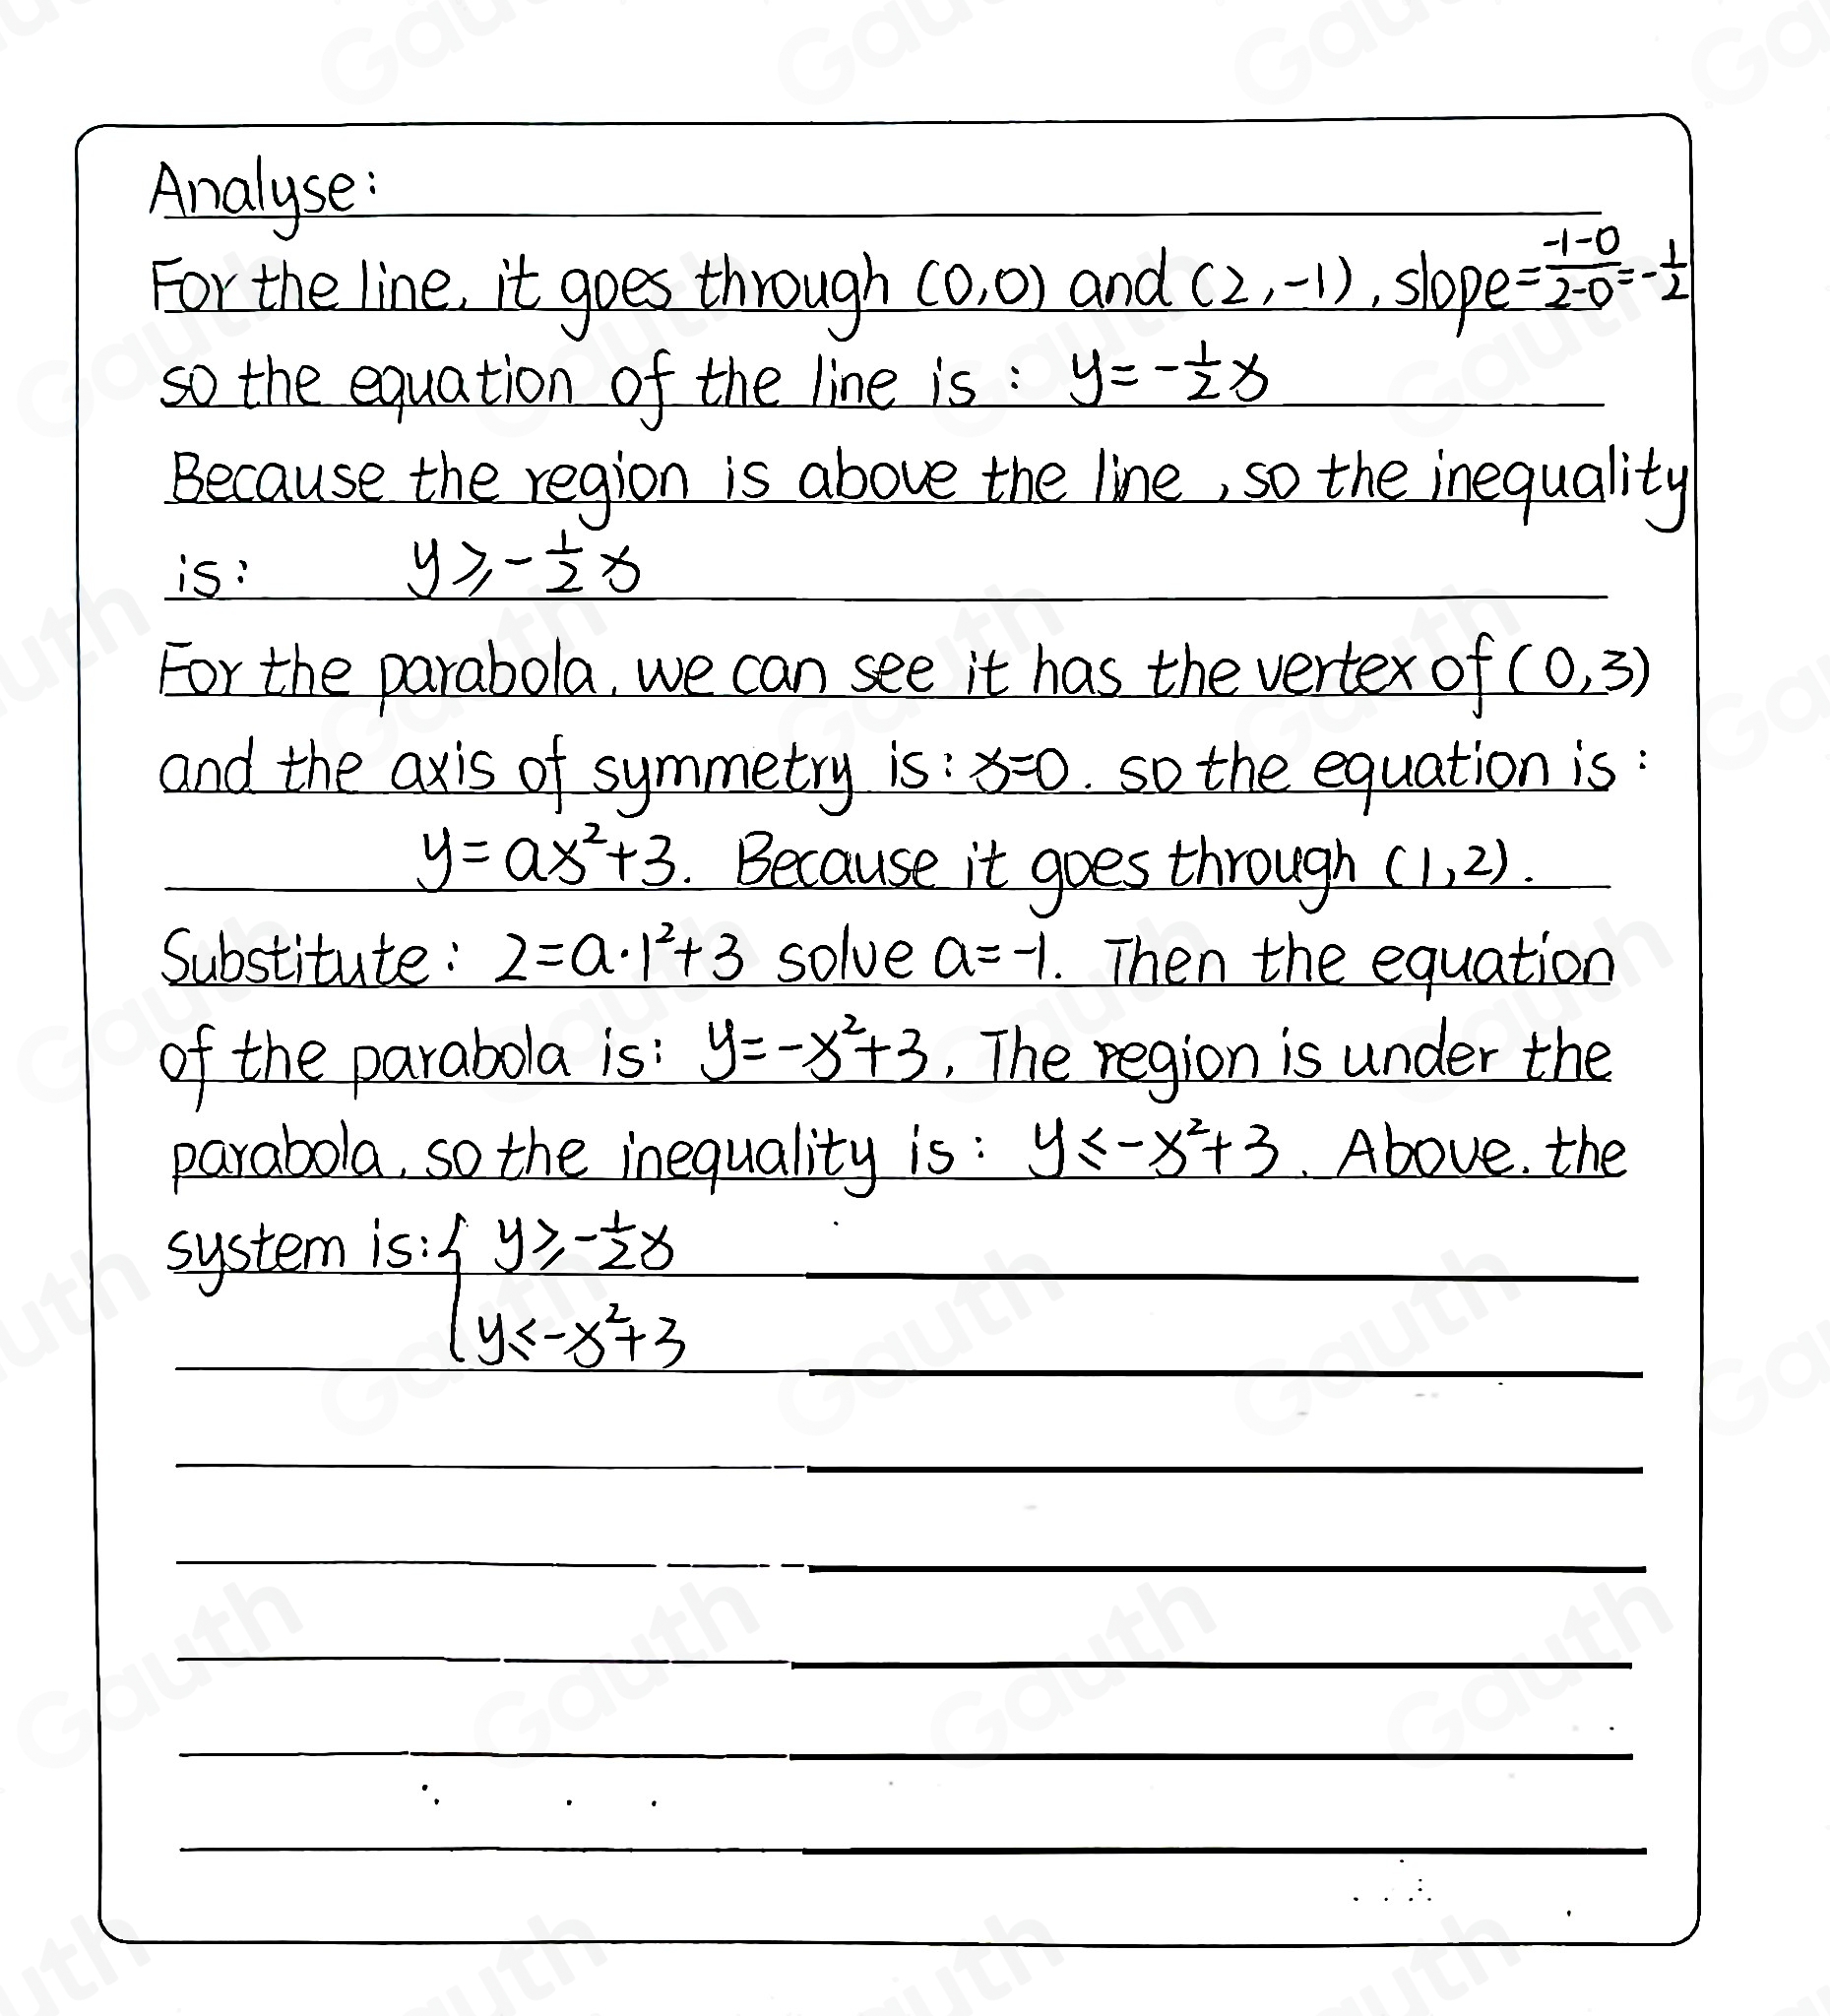 Analyse:
For the line, it goes through (0,0) and (2,-1), slope=\frac{-1-0}{2-0}=-\frac{1}{2}
so the equation of the line is : y=-\frac{1}{2}x
Because the region is above the line, so the inequality
is: y⩾-\frac{1}{2}x
For the parabola, we can see it has the vertex of (0,3)
and the axis of symmetry is: x=0. so the equation is:
y=ax²+3. Because it goes through (1,2).
Substitute: 2=a·1²+3 solve a=-1. Then the equation
of the parabola is: y=-x²+3, The region is under the
parabola, so the inequality is: y⩽-x²+3. Above, the
system is:{ y⩾-\frac{1}{2}x
y⩽-x²+3